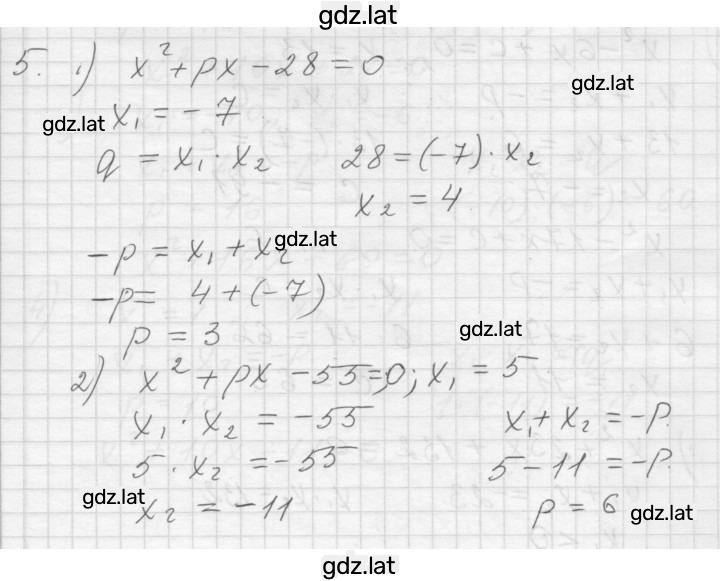 gdz.lat
5. 1) x² + px - 28 = 0
gdz.lat
x₁ = - 7
gdz.lat
q = x₁ · x₂ 28 = (-7) · x₂
x₂ = 4
-p = x₁ + x₂
gdz.lat
-p = 4 + (-7)
p = 3
gdz.lat
2) x² + px - 55 = 0; x₁ = 5
x₁ · x₂ = -55 x₁ + x₂ = -p.
5 · x₂ = -55 5 - 11 = -p.
gdz.lat
x₂ = -11 p = 6
gdz.lat
gdz.lat